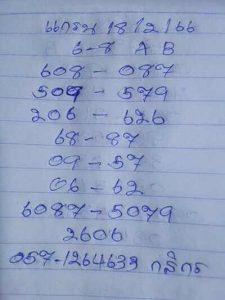 แกรน 18/2/66
6-8 A B
608 - 087
509 - 579
206 - 626
68 - 87
09 - 57
06 - 62
6087 - 5079
2606
057-1264633 กสิกร